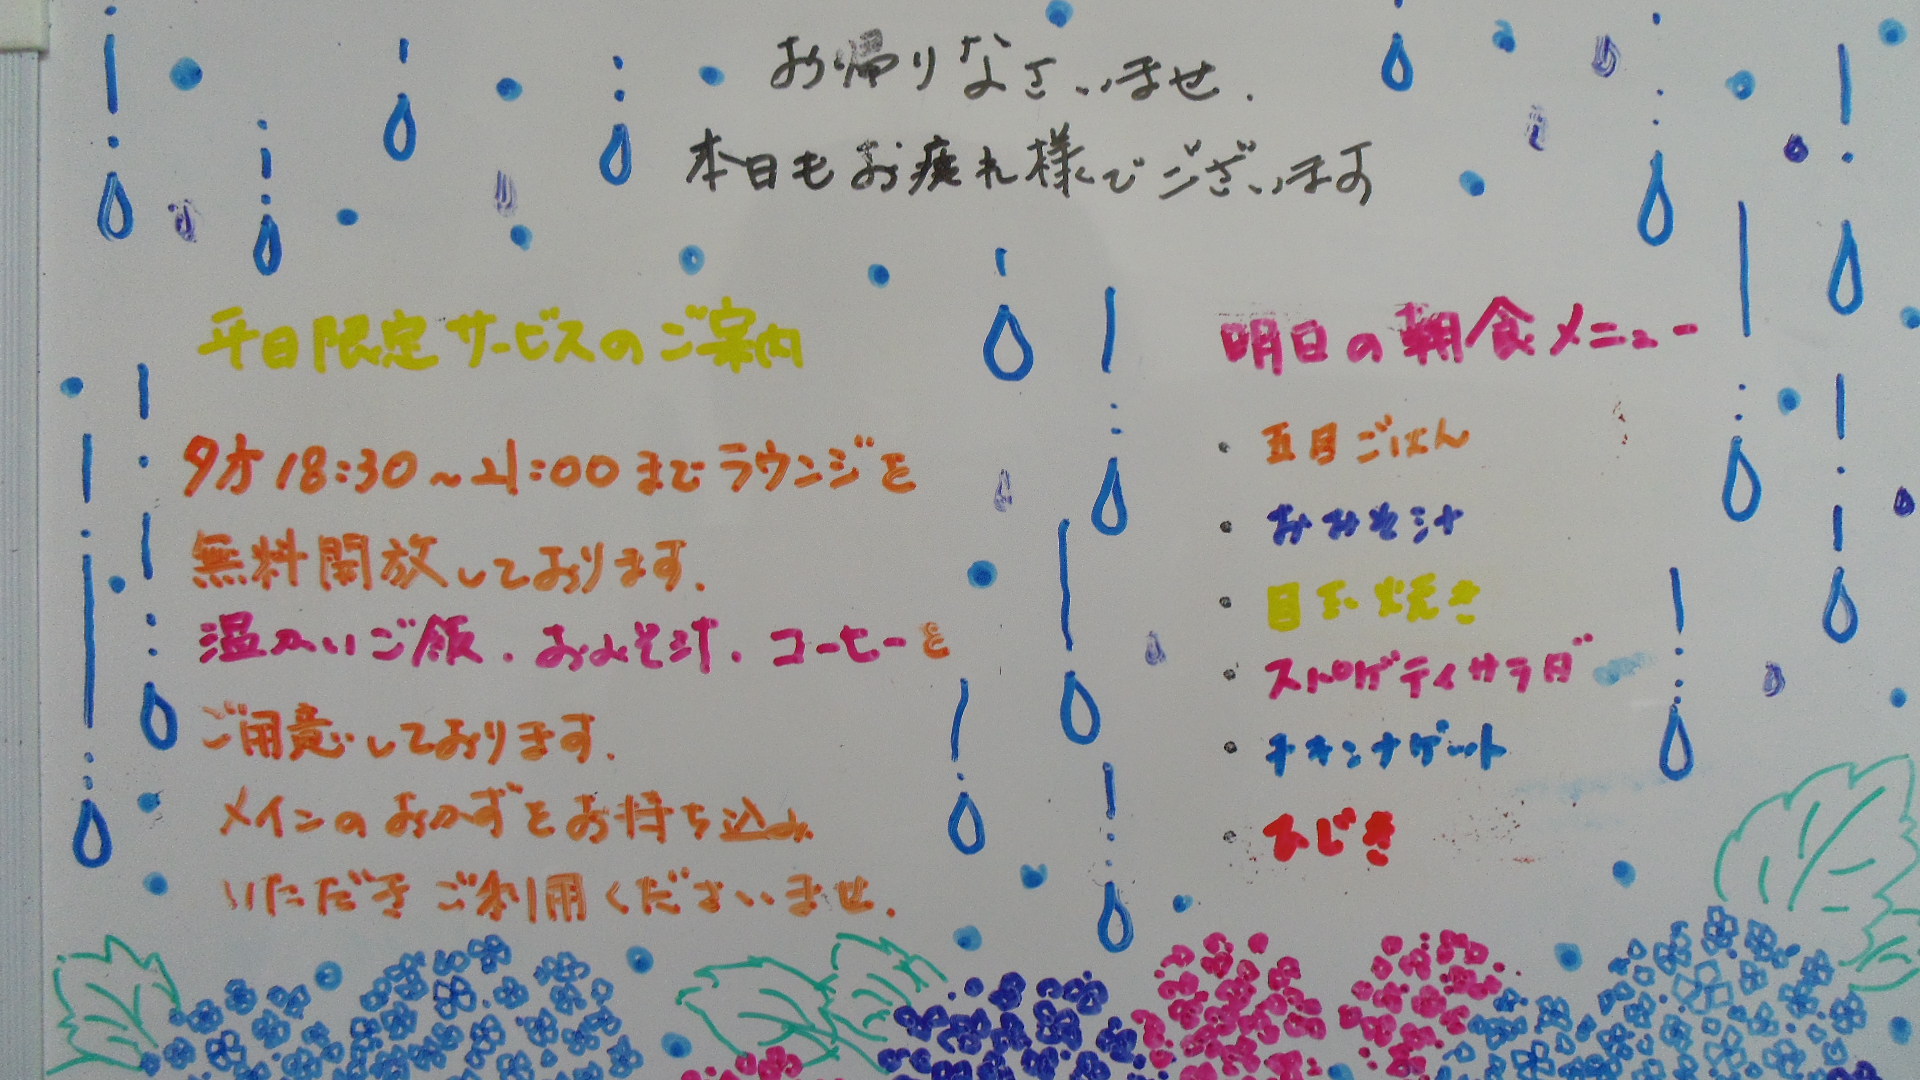 お帰りなさいませ.
本日もお疲れ様でございます
平日限定サービスのご案内
夕方18:30~21:00までラウンジを
無料開放しております.
温かいご飯.おみそ汁.コーヒーを
ご用意しております.
メインのおかずをお持ち込み
いただきご利用くださいませ.
明日の朝食メニュー
・五目ごはん
・おみそ汁
・目玉焼き
・スパゲティサラダ
・チキンナゲット
・ひじき